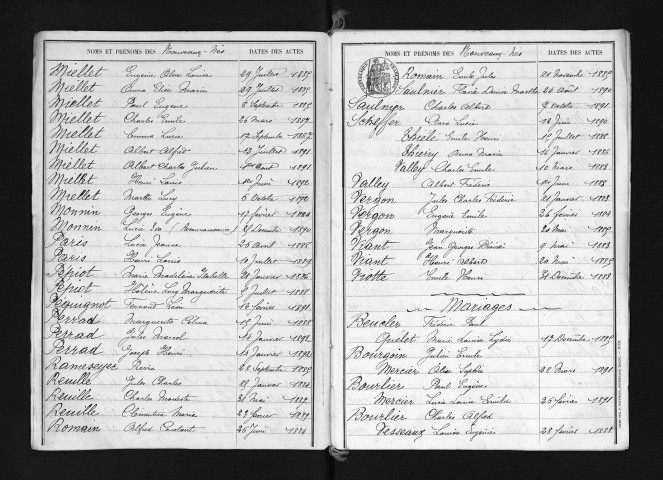 NOMS ET PRÉNOMS DES Nouveaux-Nés DATES DES ACTES
Miellet Eugénie Alice Louise 29 Juillet 1885
Miellet Emma Elise Marie 29 Juillet 1885
Miellet Paul Eugène 8 Septembre 1885
Miellet Charles Emile 26 Mars 1887
Miellet Emma Lucie 17 Septembre 1887
Miellet Albert Alfred 13 Juillet 1891
Miellet Albert Charles Julien Août 1891
Miellet Henri Louis Juin 1892
Miellet Marthe Lucy 5 Octobre 1892
Monnin Georges Eugène 17 février
Monnin Lucie Eva (Reconnaissance) Décembre 1890
Paris Lucie Jeanne 25 Août 1885
Paris Henri Louis 10 Juillet 1889
Pépiot Marie Madeleine Isabelle 21 Janvier 1886
Pépiot Hélène Lucy Marguerite 9 Juillet 1888
Péquignot Fernand Léon 12 février 1891
Perrad Marguerite Célina 15 Juin 1888
Perrad Jules Marcel 14 Janvier 1892
Perrad Joseph Henri 14 Janvier 1892
Rameseyer 28 Septembre 1885
Reuille Jules Charles 29 Janvier 1884
Reuille Charles Modeste 21 Mai 1887
Reuille Clémentine Marie 27 février 1889
Romain Alfred Constant 26 Juin 1884
NOMS ET PRÉNOMS DES Nouveaux-nés DATES DES ACTES
Romain Emile Jules 21 Novembre 1885
Saulnier Flavie Louise Marthe 26 Août 1890
Saulnier Charles Albert 9 Octobre 1891
Scheffer Lucie 12 Juin 1890
Thiélé Emile Henri 19 Juillet 1888
Thierry Anna Marie 15 Janvier 1885
Valley Charles Emile 10 Mars 1883
Valley Albert Frédéric Juin 1885
Vergon Jules Charles Frédéric 21 Janvier 1883
Vergon Eugène Emile 26 février 1884
Vergon Marguerite 20 Mai 1889
Viant Jean Georges 9 Mai 1883
Viant Henri Robert 20 Mai 1885
Viotte Emile Henri 31 Décembre 1883
Mariages
Beucler Frédéric Paul
Quélet Marie Louise Lydie 17 Décembre 1885
Bourgoin Julien Emile
Mercier Alice Sophie 28 Mars 1891
Bourlier Paul Eugène
Mercier Lucie Louise Emilie 26 février 1891
Bourlier Charles Alfred
Vesseaux Louise Eugénie 28 février 1888